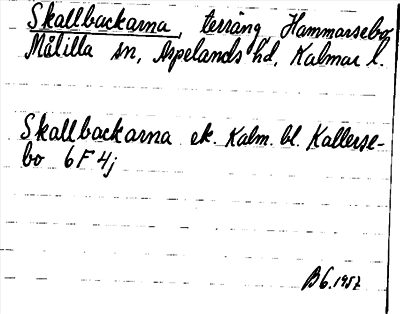 Skallbackarna, terräng Hammarsebo,
Målilla sn, Aspelands hd, Kalmar l.
Skallbackarna ek. Kalm. bl. Kallerse-
bo 6 F 4j
B6.1957